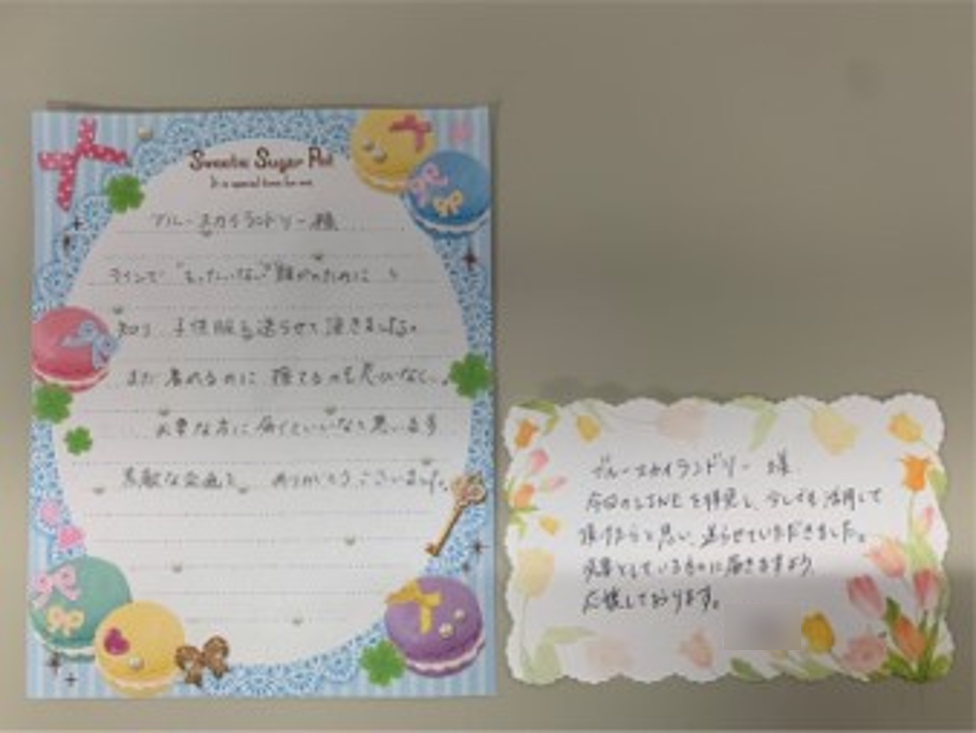 Sweetie Sugar Pot
It is special time for me.
ブルースカイランドリー様
ラインで"もったいない"誰かのために を
知り 子供服を送らせて頂きました。
まだ着れるのに 捨てるのも
必要な方に届くといいなと思います
素敵な企画を ありがとうございました。
ブルースカイランドリー 様
今回のLINEを拝見し、少しでも活用して
頂けたらと思い、送らせていただきました。
必要としている方に届きますよう
応援しております。